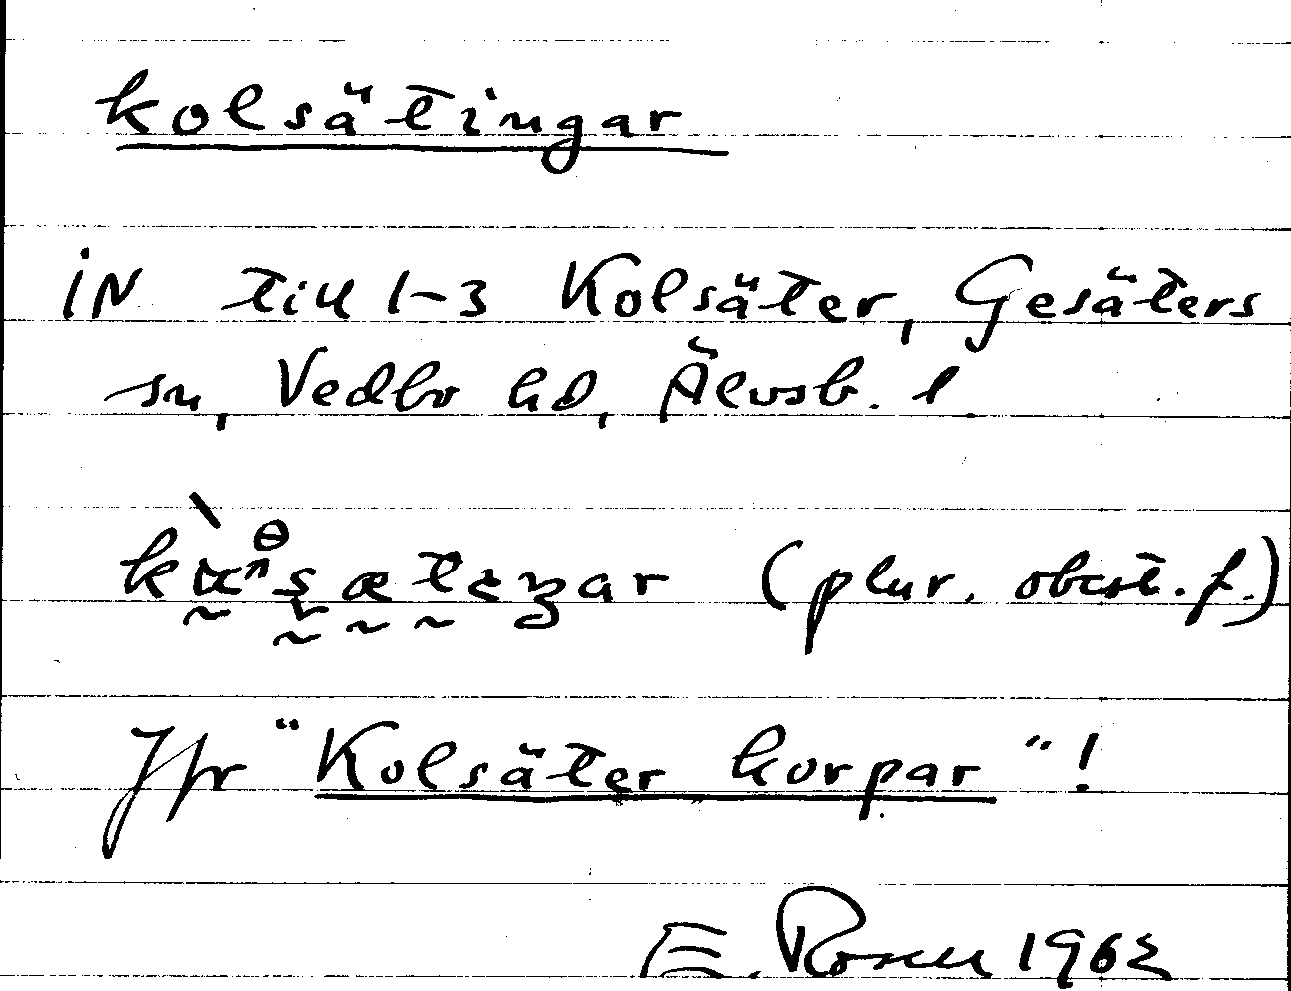 kolsätingar
IN till 1-3 Kolsäter, Gesäters
sn, Vedbo hd, Älvsb. l
(plur. obest. f.)
Jfr "Kolsäter korpar"!
E. Rosell 1962